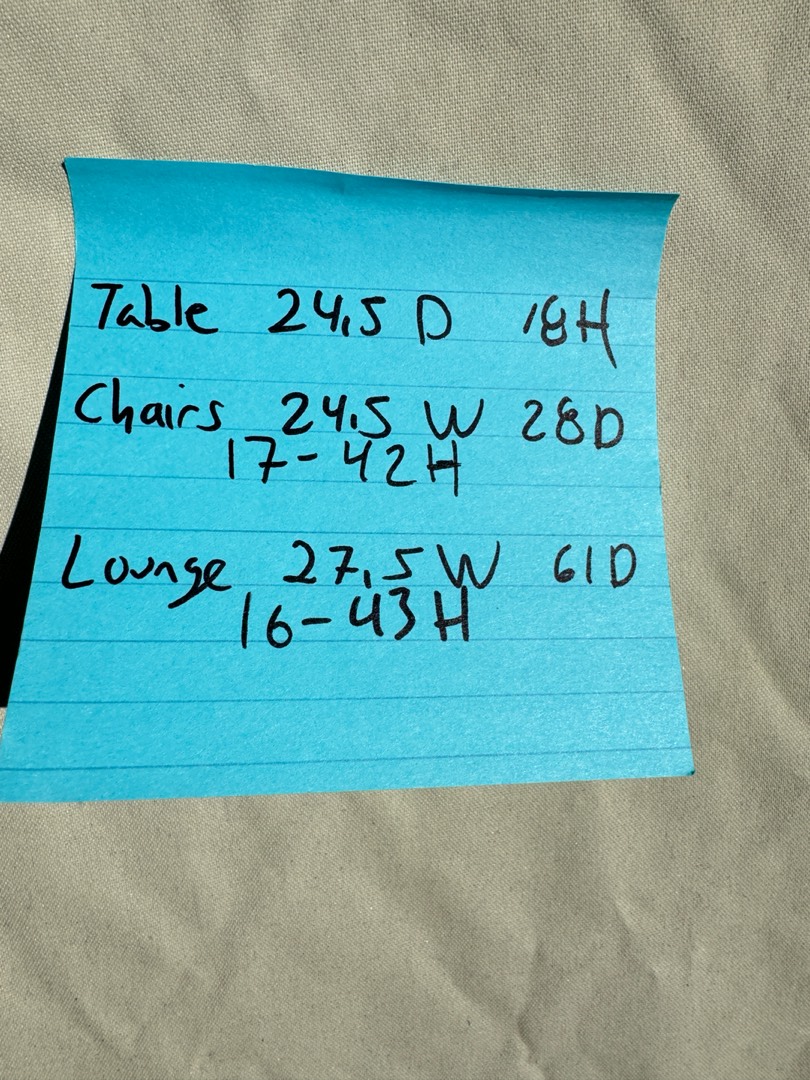 Table 24.5 D 18H
Chairs 24.5 W 28D
17-42H
Lounge 27.5 W 61D
16-43H